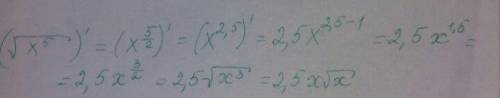 (√x⁵)' = (x^(5/2))' = (x^(2,5))' = 2,5x^(2,5-1) = 2,5x^(1,5) =
= 2,5x^(3/2) = 2,5√x³ = 2,5x√x